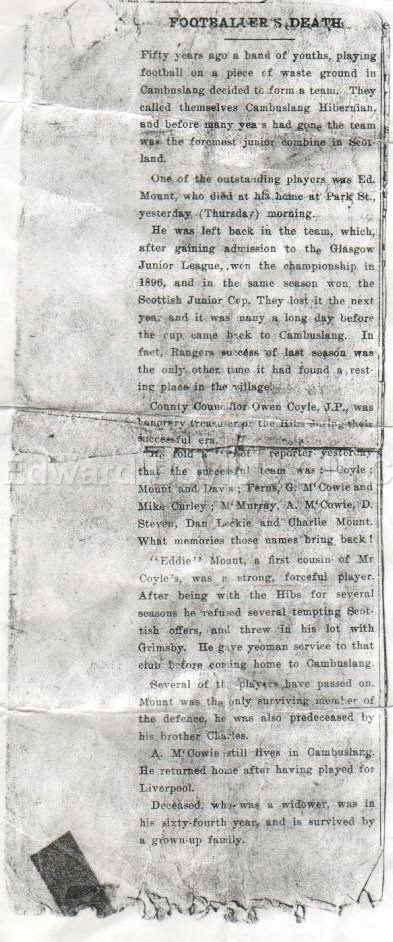 FOOTBALLER'S DEATH
Fifty years ago a band of youths, playing
football on a piece of waste ground in
Cambuslang decided to form a team. They
called themselves Cambuslang Hibernian,
and before many years had gone the team
was the foremost junior combine in Scot-
land.
One of the outstanding players was Ed.
Mount, who died at his home at Park St.,
yesterday (Thursday) morning.
He was left back in the team, which,
after gaining admission to the Glasgow
Junior League, won the championship in
1896, and in the same season won the
Scottish Junior Cup. They lost it the next
year and it was many a long day before
the cup came back to Cambuslang. In
fact, Rangers success of last season was
the only other time it had found a rest-
ing place in the village.
County Councillor Owen Coyle, J.P., was
honorary treasurer of the Hibs during their
successful era.
He told a reporter yesterday
that the successful team was:—Coyle;
Mount and Davis; Ferns, G. M'Cowie and
Mike Curley; M'Murray, A. M'Cowie, D.
Steven, Dan Leckie and Charlie Mount.
What memories those names bring back!
"Eddie" Mount, a first cousin of Mr
Coyle's, was a strong, forceful player.
After being with the Hibs for several
seasons he refused several tempting Scot-
tish offers, and threw in his lot with
Grimsby. He gave yeoman service to that
club before coming home to Cambuslang.
Several of the players have passed on.
Mount was the only surviving member of
the defence, he was also predeceased by
his brother Charles.
A. M'Cowie still lives in Cambuslang.
He returned home after having played for
Liverpool.
Deceased, who was a widower, was in
his sixty-fourth year, and is survived by
a grown-up family.
Edward